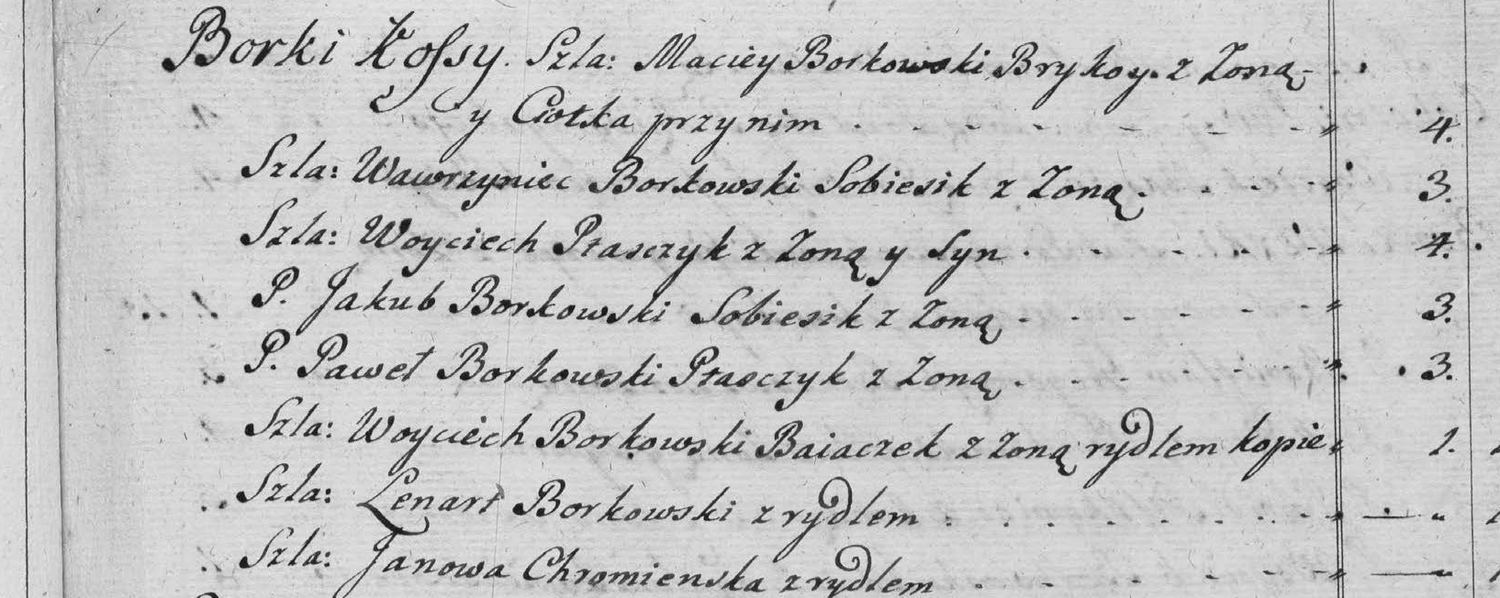 Borki Kossy. Szla: Maciey Borkowski Brykoy. z Zoną
y Ciotka przy nim 4.
Szla: Wawrzyniec Borkowski Sobiesik z Zoną 3.
Szla: Woyciech Ptasczyk z Zoną y Syn 4.
P. Jakub Borkowski Sobiesik z Zoną 3.
P. Paweł Borkowski Ptasczyk z Zoną 3.
Szla: Woyciech Borkowski Baiaczek z Zoną rydlem kopie 1.
Szla: Lenart Borkowski z rydlem
Szla: Janowa Chromienska z rydlem